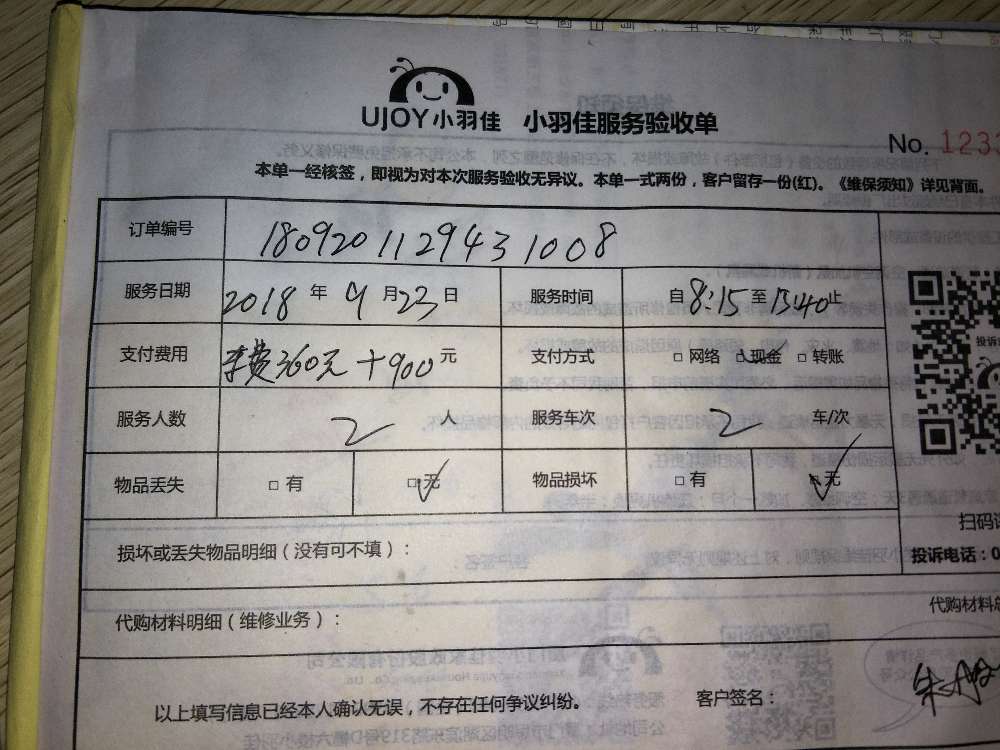 UJOY小羽佳 小羽佳服务验收单
No. 1233
本单一经核签，即视为对本次服务验收无异议。本单一式两份，客户留存一份(红)。《维保须知》详见背面。
订单编号 180920112943 1008
服务日期 2018 年 9 月 23 日 服务时间 自 8:15 至 13:40 止
支付费用 车费360元+900 元 支付方式 □ 网络 □ 现金 □ 转账
服务人数 2 人 服务车次 2 车/次
物品丢失 □ 有 □ 无 物品损坏 □ 有 □ 无
损坏或丢失物品明细（没有可不填）：
投诉电话：0
代购材料明细（维修业务）：
代购材料
以上填写信息已经本人确认无误，不存在任何争议纠纷。 客户签名：